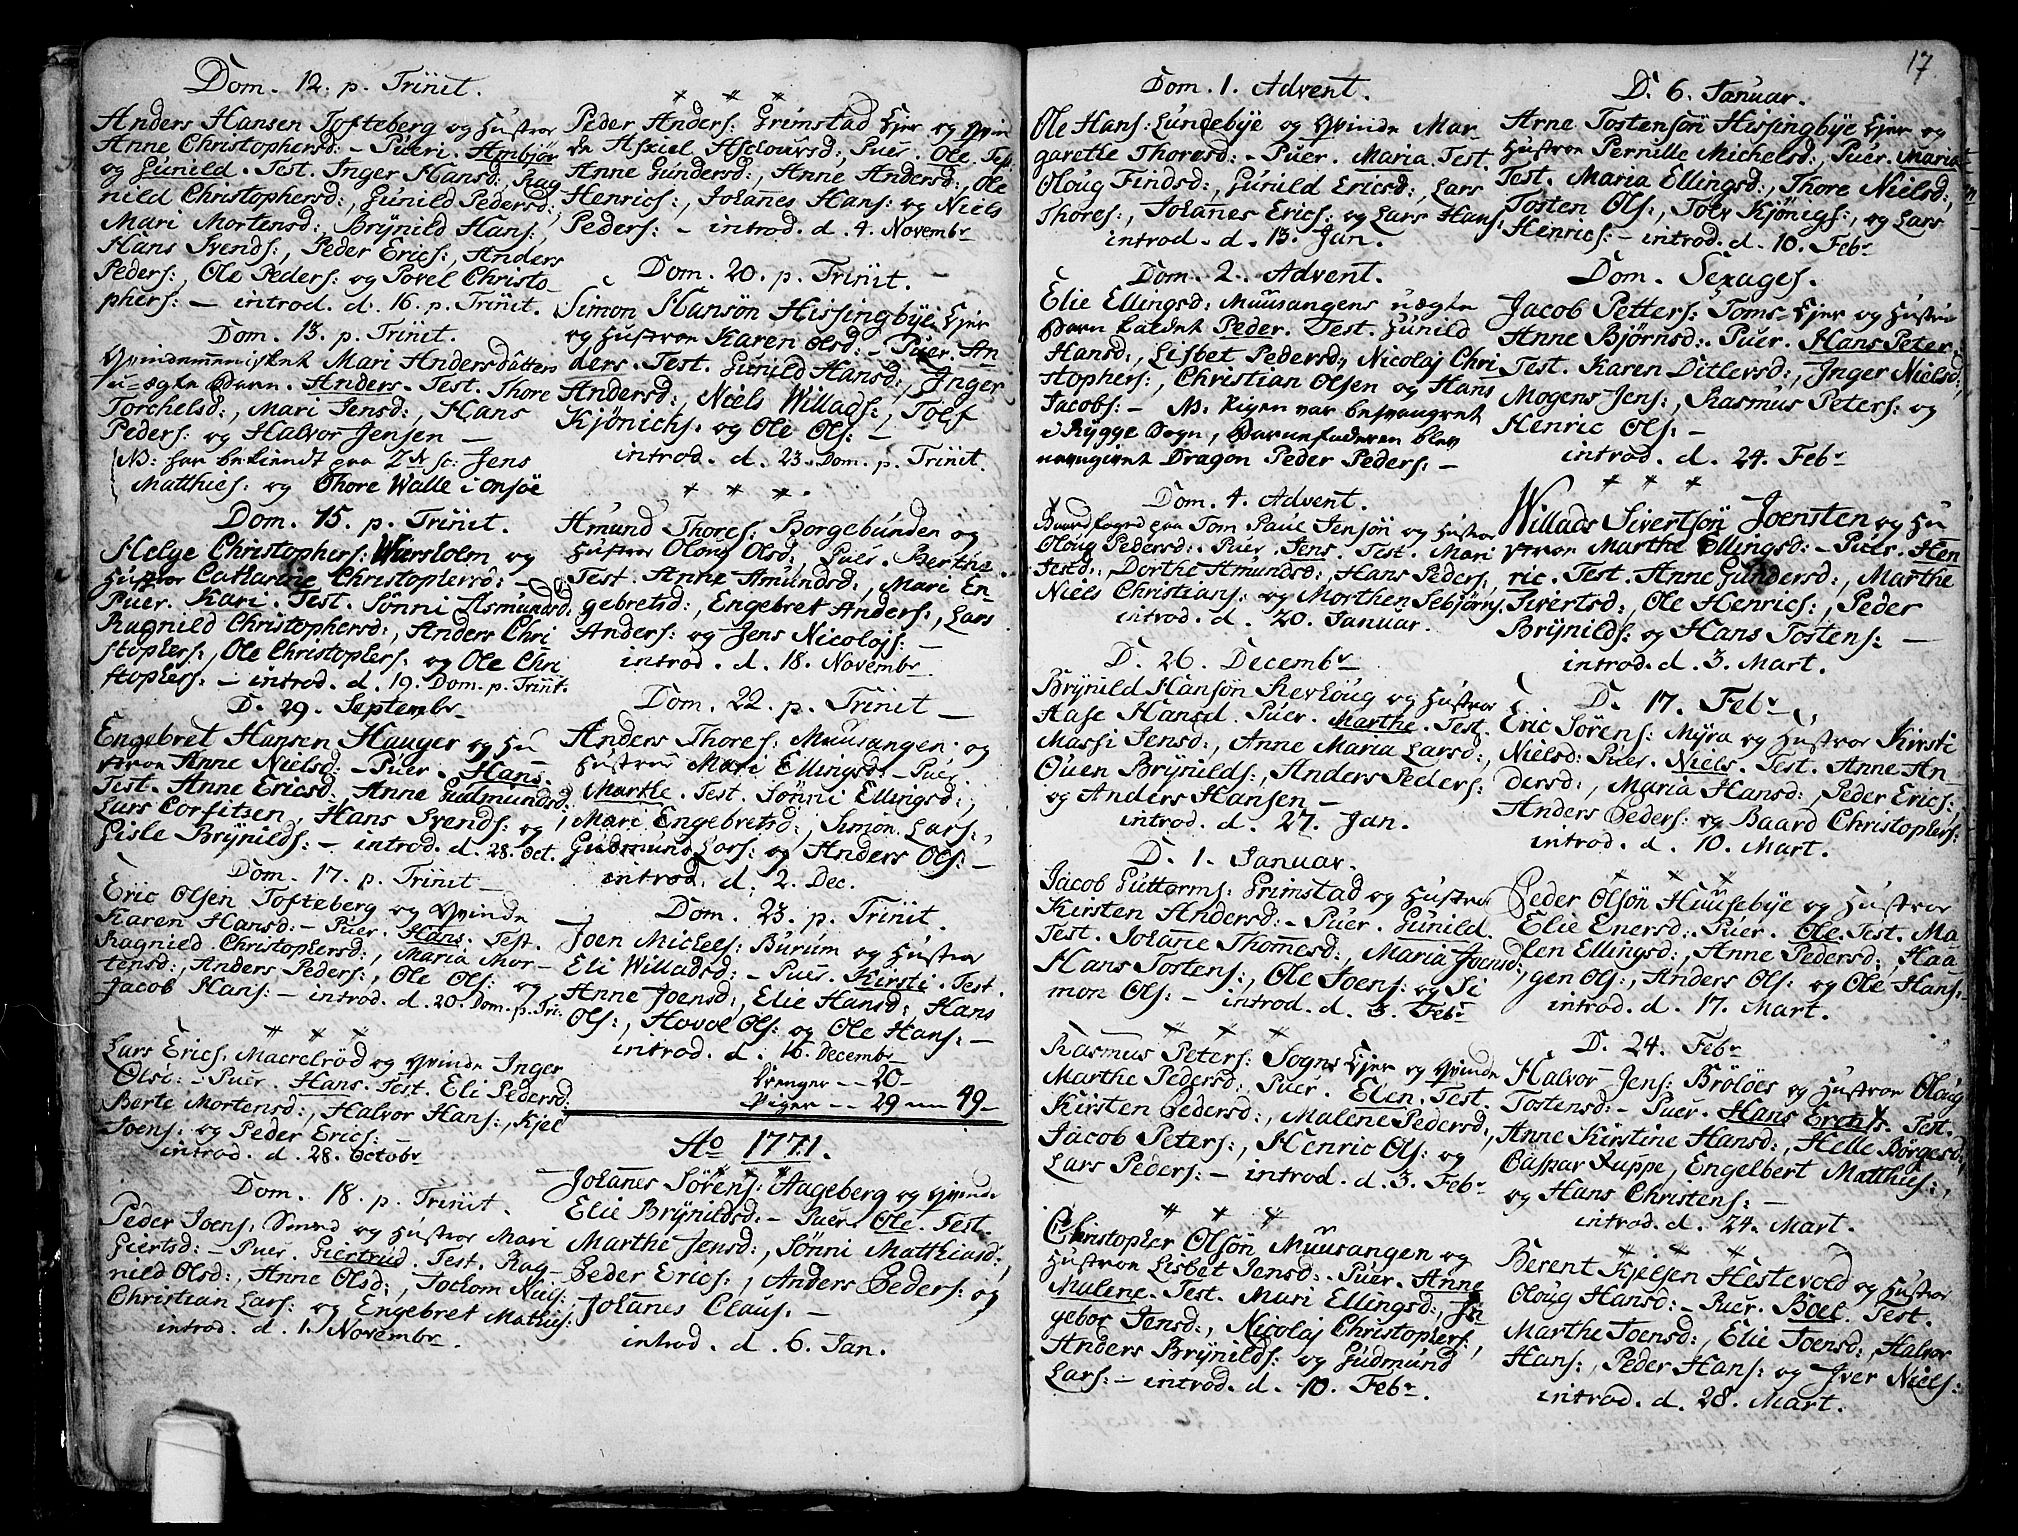 Dom. 12. p. Triñit.
Anders Hansen Tofteberg og Hustroe
Anne Christophersd: – Pueri. Ambjør
og Gunild. Test. Inger Hansd:, Rag
nild Christophersd:, Gunild Pedersd:,
Mari Mortensd:, Brÿnild Hans:,
Hans Svends:, Peder Erics:, Anders
Peders:, Ole Peders: og Povel Christo-
phers: – introd. d. 16. p. Triñit.
Dom. 13. p. Triñit.
Qvindemenisket Mari Andersdatters
u-ægte Barn. Anders. Test. Thore
Torchelsd:, Mari Jensd:, Hans
Peders: og Halvor Jensen –
NB: har bekiendt paa Jens
Matthies: og Thore Walle i Onsøe
Dom. 15. p. Triñit.
Helge Christophers: Wiersholm og
Hustroe Catharine Christophersd: –
Puer. Kari. Test. Sønni Asmundsd:
Ragnild Christophersd:, Anders Chri
stophers:, Ole Christophers: og Ole Chri
stophers: – introd. d. 19. Dom. p. Triñit.
D. 29. Septembr
Engebret Hansen Hauger og Hu
stroe Anne Nielsd: – Puer. Hans.
Test. Anne Ericsd. Anne Gudmundsd:
Lars Corfitsen, Hans Svends: og
Gisle Brÿnilds: – introd. d. 28. Oct.
Dom. 17. p. Triñit –
Eric Olsen Tofteberg og Qvinde
Karen Hansd: – Puer. Hans. Test.
Ragnild Christophersd:, Maria Mor-
tensd:, Anders Peders:, Ole Ols: og
Jacob Hans: – introd. d. 20. Dom. p. Tri:
* * *
Lars Erics. Macrelrød og Qvinde Inger
Olsd: – Puer. Hans. Test. Eli Pedersd:
Berte Mortensd:, Halvor Hans:, Kjel
Joens: og Peder Erics:
introd. d. 28. Octobr
Dom. 18. p. Triñit.
Peder Joens: Smed og Hustroe Mari
Giertsd: – Puer. Giertrud. Test. Rag-
nild Olsd:, Anne Olsd:, Jochom Niels:
Christian Lars: og Engebret Mathies:
introd. d. 1. Novembr.
* * *
Peder Anders: Grimstad Ejer og Qvin
de Asxiel Aslouvsd:, Puer. Ole. Test:
Anne Gundersd:, Anne Andersd:, Ole
Henrics:, Johanes Hans: og Niels
Peders: – introd. d. 4. Novembr
Dom. 20. p. Triñit. –
Simon Hansøn Hissingbye Ejer
og Hustroe Karen Olsd: – Puer. An
ders. Test. Gunild Hansd:, Inger
Andersd:, Niels Willads:, Tolf
Kjønichs: og Ole Ols: –
introd. d. 23. Dom. p. Triñit.
* * *
Amund Thores: Borgebunden og
Hustroe Oloug Olsd:, Puer. Berthe.
Test. Anne Amundsd:, Mari En-
gebretsd:, Engebret Anders:, Lars
Anders: og Jens Nicolojs: –
introd. d. 18. Novembr
Dom. 22. p. Triñit –
Anders Thores: Muusangen og
Hustroe Mari Ellingsd: – Puer.
Marthe. Test. Sønni Ellingsd:,
Mari Engebretsd:, Simon Lars:,
Gudmund Lars: og Anders Ols: –
introd. d. 2. Dec.
Dom. 23. p. Triñit.
Joen Michels: Burum og Hustroe
Eli Willadsd: – Puer. Kirsti. Test.
Anne Joensd:, Elie Hansd:, Hans
Ols:, Hovol Ols: og Ole Hans: –
introd. d. 16. Decembr
Drenger -- 20 –
Piger -- 29 — 49 –
Ao 1771.
* * *
Johanes Sørens: Aageberg og Qvinde
Elie Brÿnildsd: – Puer. Ole. Test.
Marthe Jensd:, Sønni Matthiasd:,
Peder Erics:, Anders Peders: og
Johanes Claus. –
introd. d. 6. Jan.
Dom. 1. Advent.
Ole Hans: Lundebye og Qvinde Mar
garethe Thoresd: – Puer. Maria. Test.
Oloug Findsd:, Gunild Ericsd:, Lars
Thores:, Johanes Erics: og Lars Hans:
introd. d. 13. Jan.
Dom. 2. Advent.
Elie Ellingsd: Muusangens uægte
Barn kaldet Peder. Test. Gunild
Hansd:, Lisbet Pedersd:, Nicolaj Chri
stophers:, Christian Olsen og Hans
Jacobs: – NB. Pigen var besvangret
i Rygge Sogn, Barnefaderen blev
navngivet Dragon Peder Peders: –
Dom. 4. Advent.
Baardfogd paa Tom Paul Jensøn og Hustroe
Oloug Pedersd: – Puer. Jens. Test. Mari
Jensd:, Dorthe Amundsd:, Hans Peders:,
Niels Christians: og Morthen Sebjørns:
introd. d. 20. Januar.
D. 26. Decembr
Brÿnild Hansøn Revhoug og Hustroe
Aase Hansd. Puer. Marthe. Test.
Massi Jensd:, Anne Maria Larsd:,
Ouen Brÿnilds:, Anders Peders:
og Anders Hansen –
introd. d. 27. Jan.
D. 1. Januar.
Jacob Guttorms: Grimstad og Hustroe
Kirsten Andersd: – Puer. Gunild.
Test. Johane Thomesd:, Maria Joensd:,
Hans Tostens:, Ole Joens: og Si
mon Ols: – introd. d. 3. Febr
* * *
Rasmus Peters: Sogns Ejer og Qvinde
Marthe Pedersd:, Puer. Elen. Test.
Kirsten Pedersd:, Malene Pedersd:,
Jacob Peters:, Henric Ols: og
Lars Peders: – introd. d. 3. Febr
* * *
Christopher Olsøn Muusangen og
Hustroe Lisbet Jensd: – Puer. Anne
Malene. Test. Mari Ellingsd:, In
gebor Jensd:, Nicolaj Christophers:,
Anders Brÿnilds: og Gudmund
Lars: – introd. d. 10. Febr.
17
D. 6. Januar.
Arne Tostensøn Hissingbye Ejer og
Hustroe Pernille Michelsd:, Puer. Maria
Test. Maria Ellingsd:, Thore Nielsd:,
Tosten Ols:, Tolv Kjønigs:, og Lars
Henrics: – introd. d. 10. Febr
Dom. Sexages.
Jacob Petters: Toms-Ejer og Hustroe
Anne Bjørnsd: – Puer. Hans Peter.
Test. Karen Ditlevsd:, Inger Nielsd:,
Mogens Jens:, Rasmus Peters: og
Henric Ols: –
introd. d. 24. Febr
* * *
Willads Sivertsøn Joensten og Hu
stroe Marthe Ellingsd: – Puer. Hen
ric. Test. Anne Gundersd:, Marthe
Sivertsd:, Ole Henrics:, Peder
Brÿnilds: og Hans Tostens: –
introd. d. 3. Mart.
D. 17. Febr
Eric Sørens: Myra og Hustroe Kirsti
Nielsd: Puer. Niels. Test. Anne An
dersd:, Maria Hansd:, Peder Erics:,
Anders Peders: og Baard Christophers:
introd. d. 10. Mart.
* * *
Peder Olsøn Huusebye og Hustroe
Elie Enersd: – Puer. Ole. Test. Ma
len Ellingsd:, Anne Pedersd:, Haa
gen Ols:, Anders Ols: og Ole Hans: –
introd. d. 17. Mart.
D. 24. Febr
Halvor Jens: Brøløes og Hustroe Oloug
Tostensd: – Puer. Hans Erents. Test.
Anne Kirstine Hansd:, Helle Børgesd:,
Caspar Ruppe, Engelbert Matthies:,
og Hans Christens: –
introd. d. 24. Mart.
* * *
Berent Kjelsen Hestevold og Hustroe
Oloug Hansd: – Puer. Boel. Test.
Marthe Joensd:, Elie Joensd:, Halvor
Hans:, Peder Hans: og Iver Niels:
introd. d. 28. Mart.